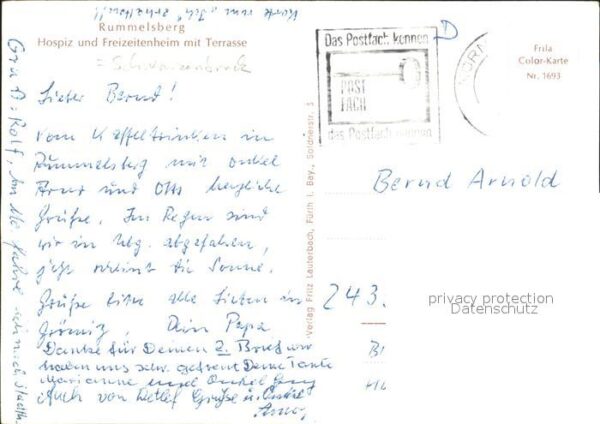 Karte von "Ich" erhalten!!
Rummelsberg
Hospiz und Freizeitenheim mit Terrasse
= Schwarzenbruck
Lieber Bernd!
vom Kaffeetrinken in
Rummelsberg mit Onkel
Ernst und Otti herzliche
Grüße. Im Regen sind
wir in Nbg. abgefahren,
jetzt scheint die Sonne.
Grüße bitte alle Lieben in
Dein Papa
Danke für Deinen 2. Brief wir
haben uns sehr gefreut Deine Tante
Marianne und Onkel
Auch von Detlef Grüße u. Onkel
Gru D: Rolf,
Das Postfach kennen
POST
FACH
das Postfach nennen
NÜRN
D
Frila
Color-Karte
Nr. 1693
Verlag Fritz Lauterbach, Fürth i. Bay., Soldnerstr. 5
Bernd Arnold
243.
privacy protection
Datenschutz